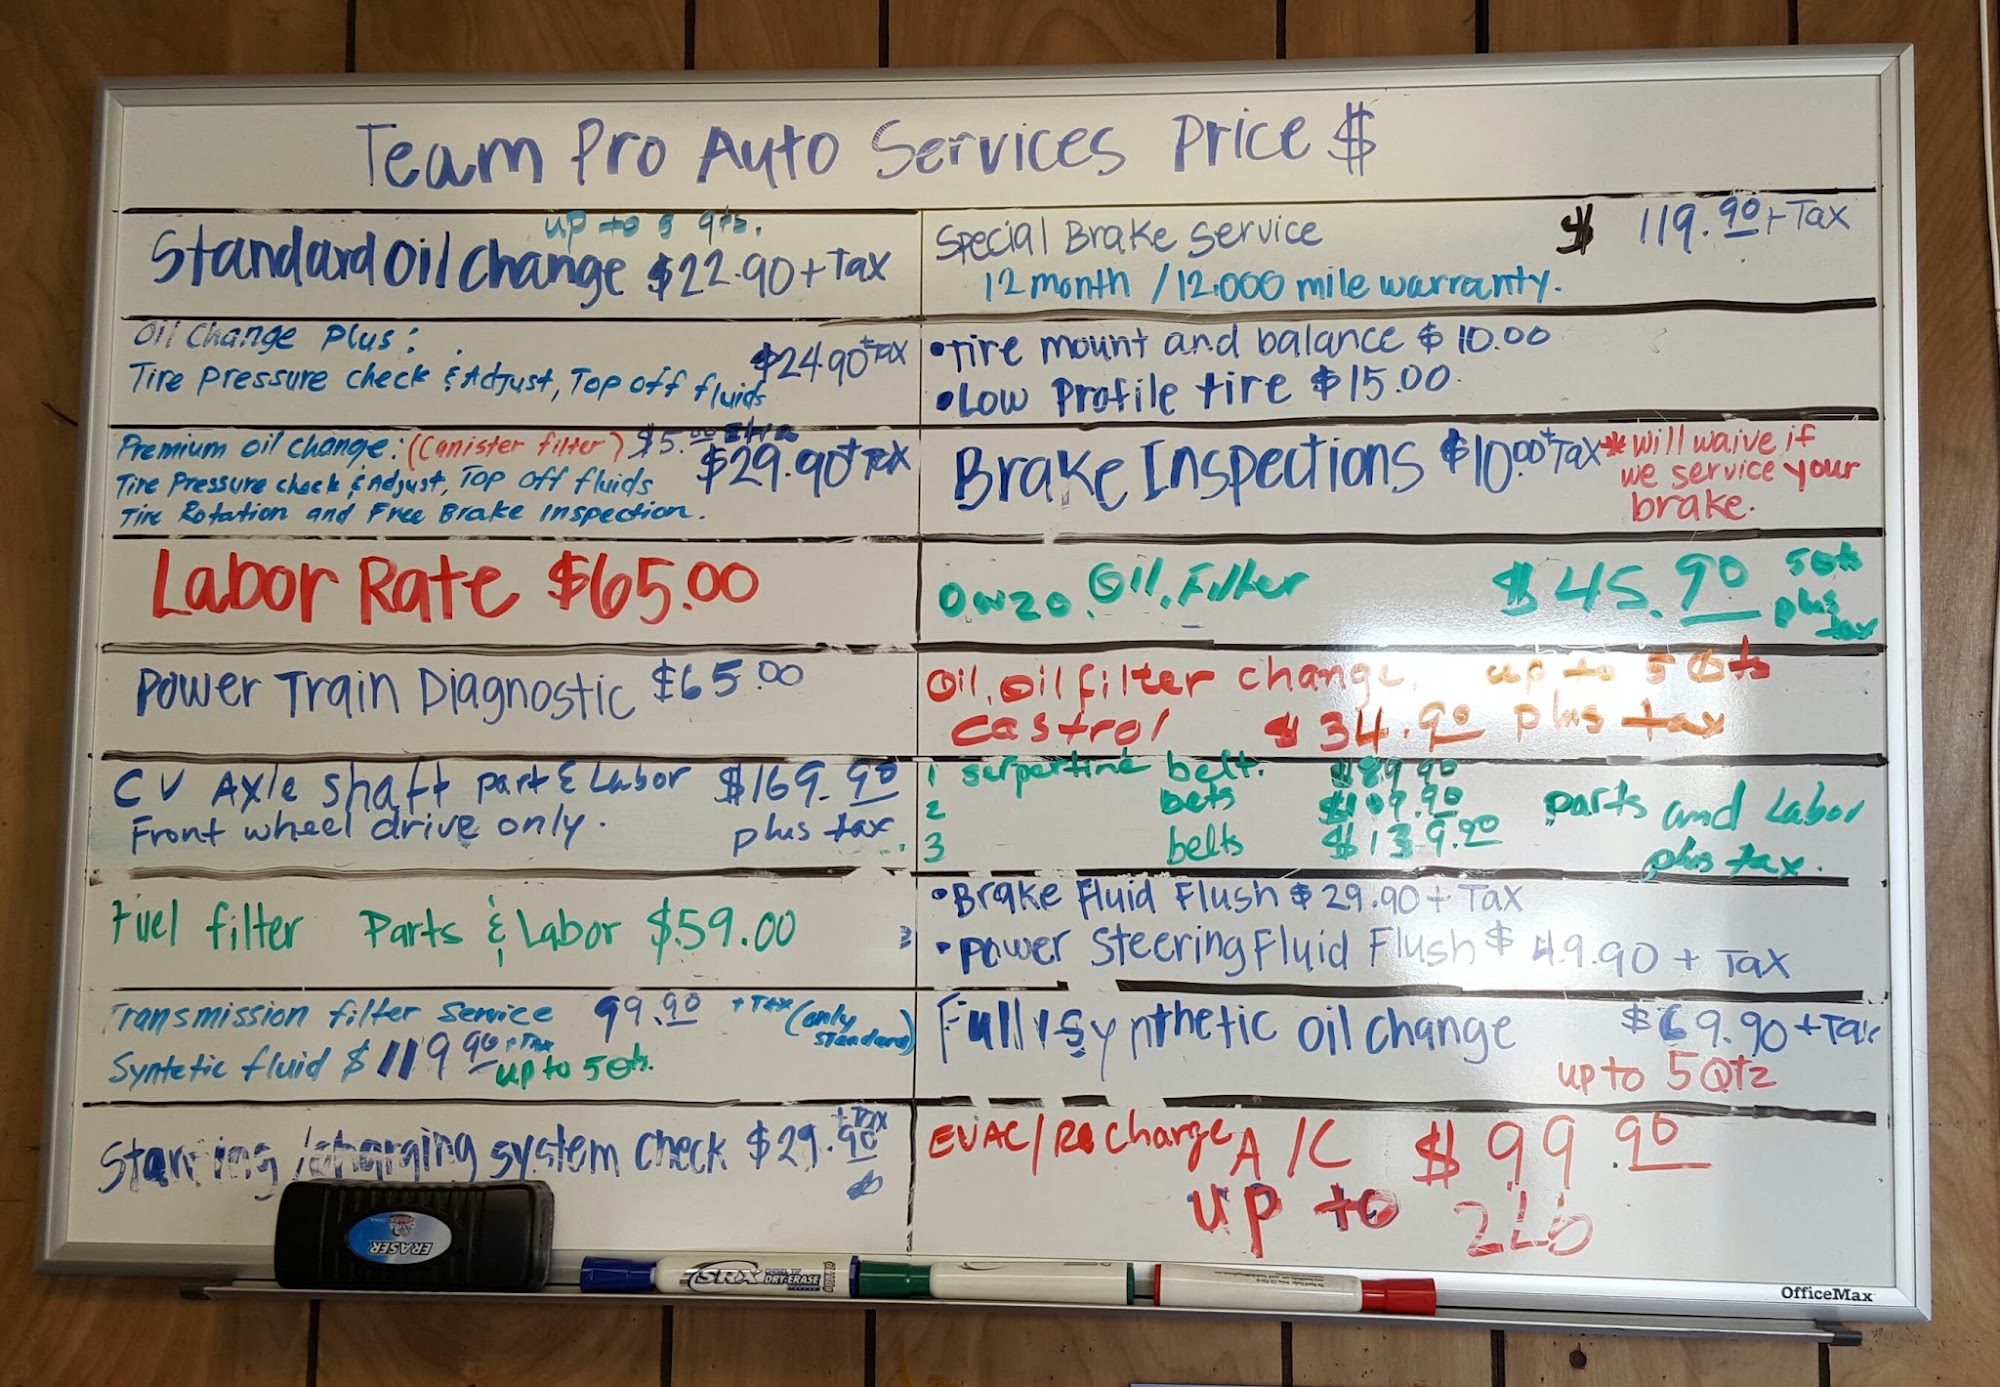 Team Pro Auto Services Price $
up to 5 qts.
Standard Oil Change $22.90 + Tax
Oil Change Plus:
$24.90 + Tax
Tire pressure check & Adjust, Top off fluids
Premium oil change: (Canister filter) $5.00 Extra
$29.90 + Tax
Tire Pressure check & Adjust, Top off fluids
Tire Rotation and Free Brake Inspection.
Labor Rate $65.00
Power Train Diagnostic $65.00
CV Axle shaft part & Labor $169.90
Front wheel drive only. plus tax.
Fuel filter Parts & Labor $59.00
Transmission filter Service 99.90 + Tax (only standard)
Syntetic fluid $119.90 + Tax up to 5 Qts.
Starting / charging system check $29.90 + Tax
Special Brake Service $ 119.90 + Tax
12 month / 12.000 mile warranty.
• Tire mount and balance $10.00
• Low Profile tire $15.00
Brake Inspections $10.00 + Tax * will waive if
we service your
brake.
0w20. Oil. Filter $45.90 5 Qts
plus
tax
Oil, Oil filter change. up to 5 Qts
castrol $34.90 plus tax
1 serpertine belt. $89.90
2 bets $109.90 parts and Labor
3 belts $139.90 plus tax.
• Brake Fluid Flush $29.90 + Tax
• Power Steering Fluid Flush $49.90 + Tax
Full Synthetic oil change $69.90 + Tax
up to 5 Qtz
EVAC/Recharge A/C $99.90
up to 2Lb
ERASER
SRX DRY-ERASE
OfficeMax